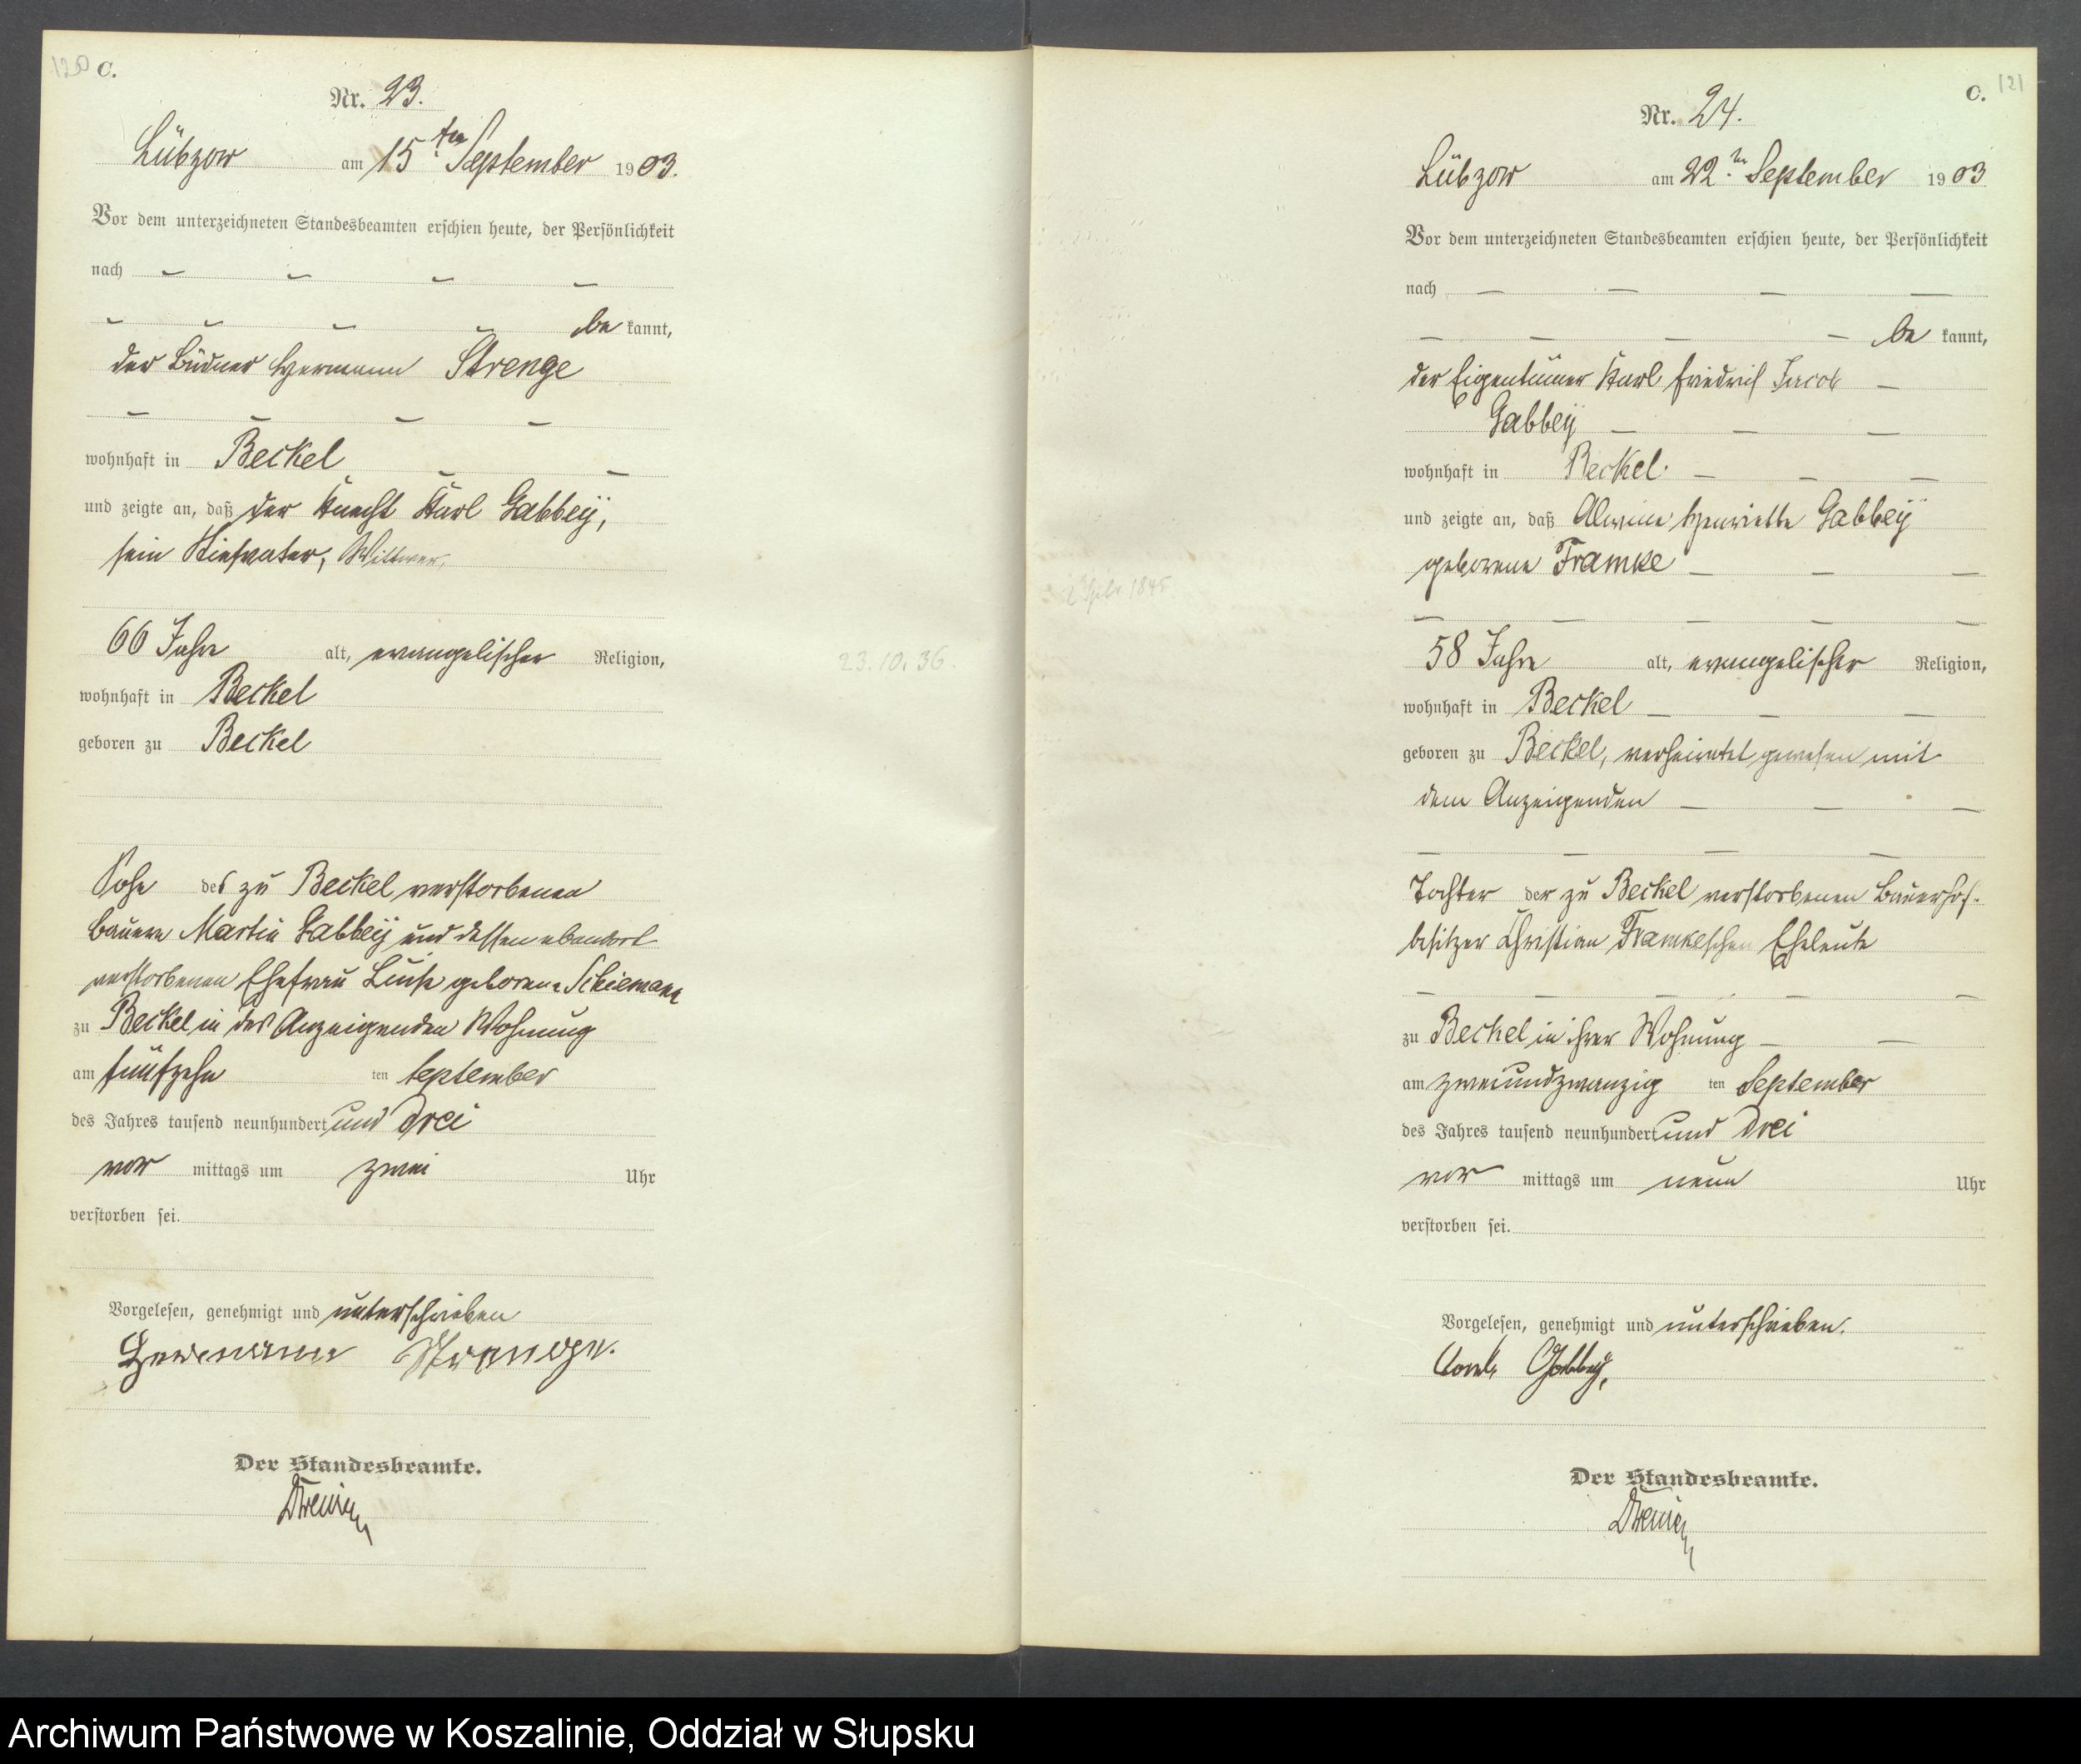 120 C.
Nr. 23.
Lübzow am 15ten September 1903.
Vor dem unterzeichneten Standesbeamten erschien heute, der Persönlichkeit
nach - - - -
- - - - be kannt,
der Büdner Hermann Strenge
- - - -
wohnhaft in Beckel - -
und zeigte an, daß der Knecht Karl Gabbeÿ,
sein Stiefvater, Wittwer,
66 Jahre alt, evangelischer Religion,
wohnhaft in Beckel
geboren zu Beckel
Sohn des zu Beckel verstorbenen
Bauern Martin Gabbeÿ und dessen ebendort
verstorbenen Ehefrau Luise geborene Schiemann
zu Beckel in des Anzeigenden Wohnung
am fünfzehn ten September
des Jahres tausend neunhundert und drei
vor mittags um zwei Uhr
verstorben sei.
Vorgelesen, genehmigt und unterschrieben
Hermann Strenge.
Der Standesbeamte.
23.10.36.
C. 121
Nr. 24.
Lübzow am 22ten September 1903
Vor dem unterzeichneten Standesbeamten erschien heute, der Persönlichkeit
nach - - - -
- - - - be kannt,
der Eigentümer Karl Friedrich Jacob -
Gabbeÿ - - -
wohnhaft in Beckel. - - -
und zeigte an, daß Alwine Henriette Gabbeÿ
geborene Framke - - -
- - - - -
58 Jahre alt, evangelischer Religion,
wohnhaft in Beckel - - -
geboren zu Beckel, verheiratet gewesen mit
dem Anzeigenden - - -
- - - -
Tochter der zu Beckel verstorbenen Bauerhof-
besitzer Christian Framkeschen Eheleute
- - - - -
zu Beckel in ihrer Wohnung - -
am zweiundzwanzig ten September
des Jahres tausend neunhundert und drei
vor mittags um neun Uhr
verstorben sei.
Vorgelesen, genehmigt und unterschrieben.
Gabbeÿ,
Der Standesbeamte.
1845
Archiwum Państwowe w Koszalinie, Oddział w Słupsku